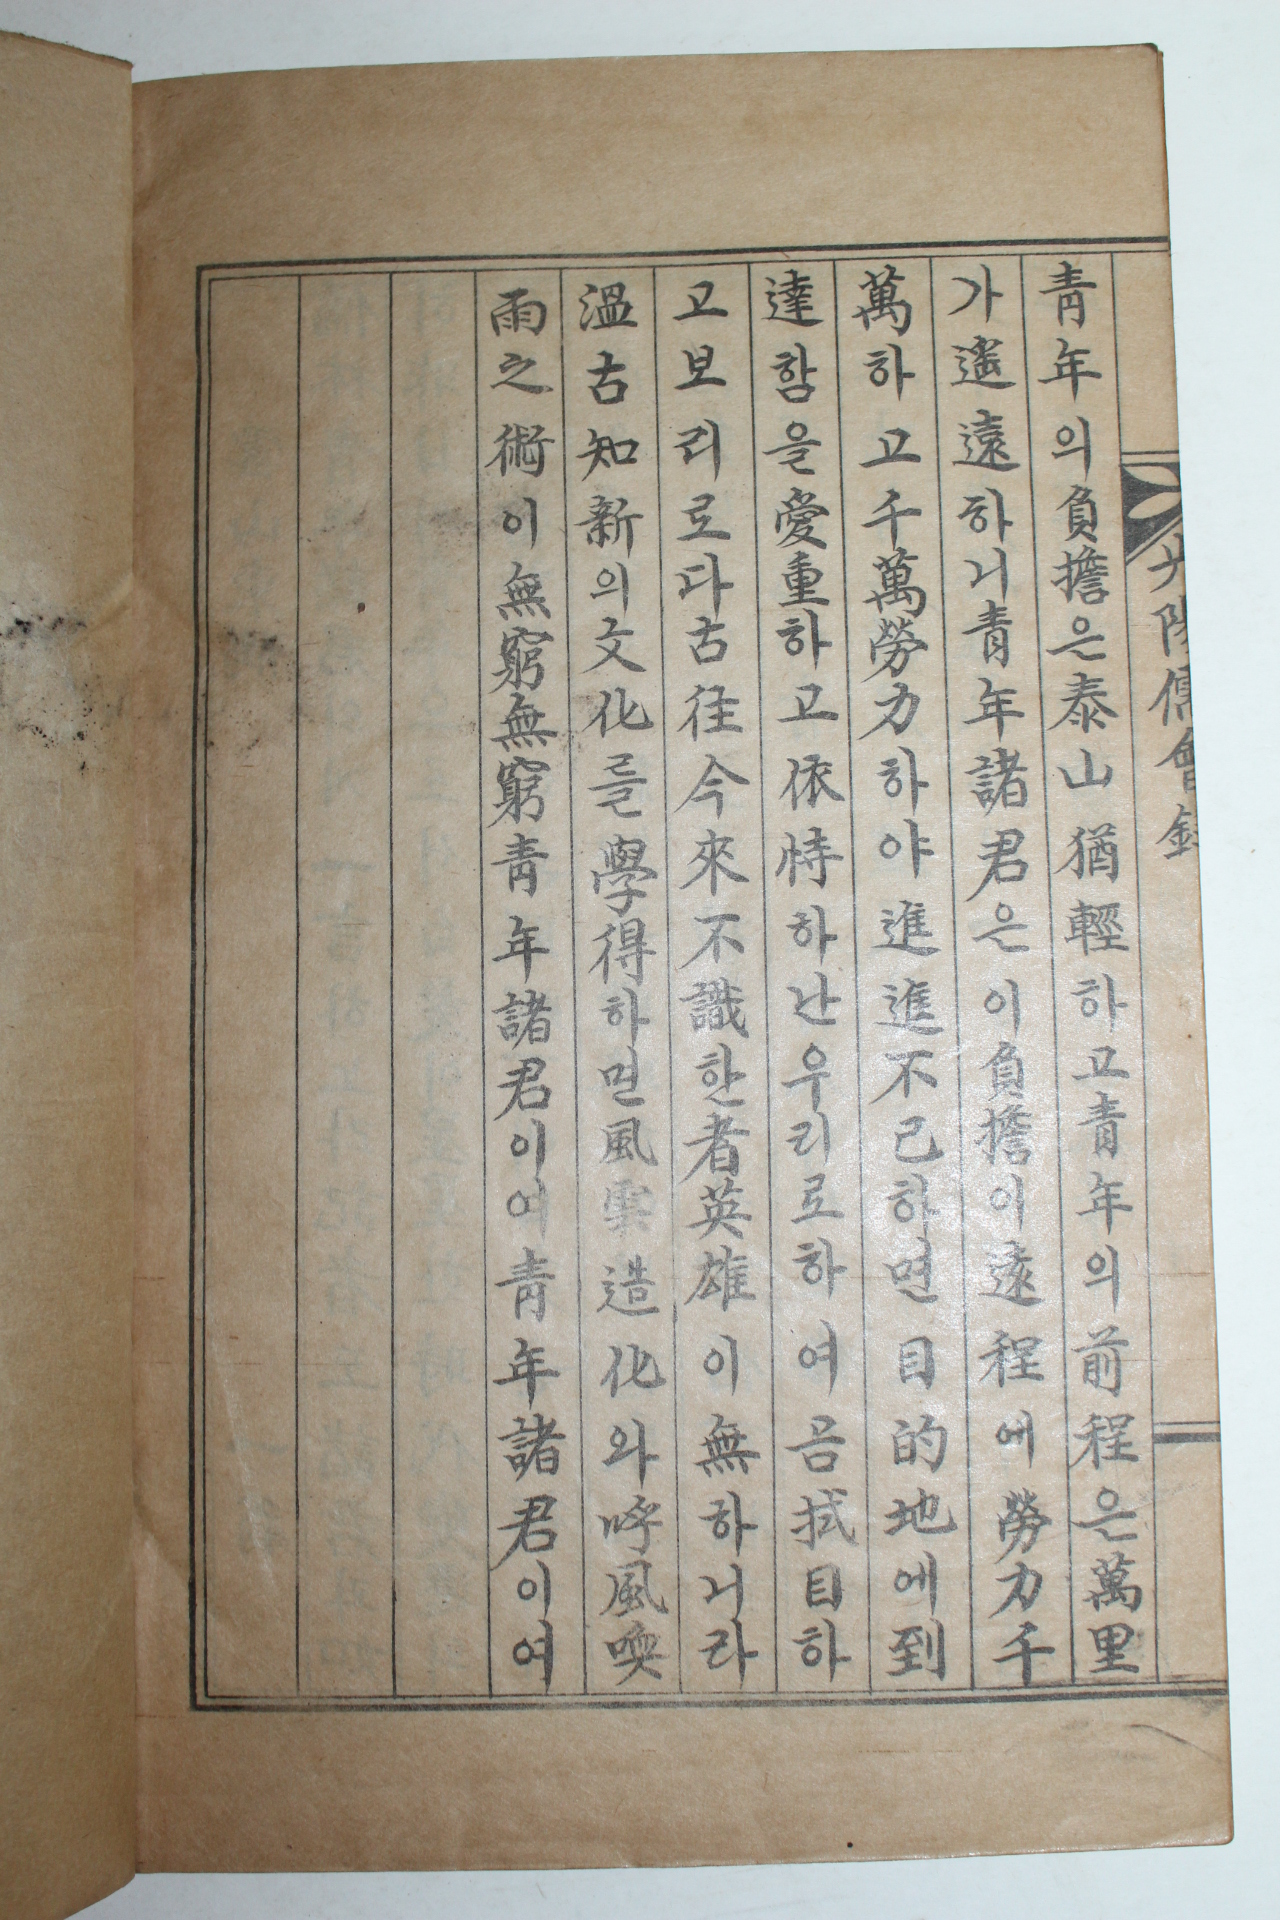 靑年의負擔은泰山猶輕하고靑年의前程은萬里
가遙遠하니靑年諸君은이負擔이遠程에勞力千
萬하고千萬勞力하야進進不已하면目的地에到
達함을愛重하고依恃하난우리로하여곰拭目하
고보리로다古往今來不識한者英雄이無하니라
溫古知新의文化를學得하면風雲造化와呼風喚
雨之術이無窮無窮靑年諸君이여靑年諸君이여